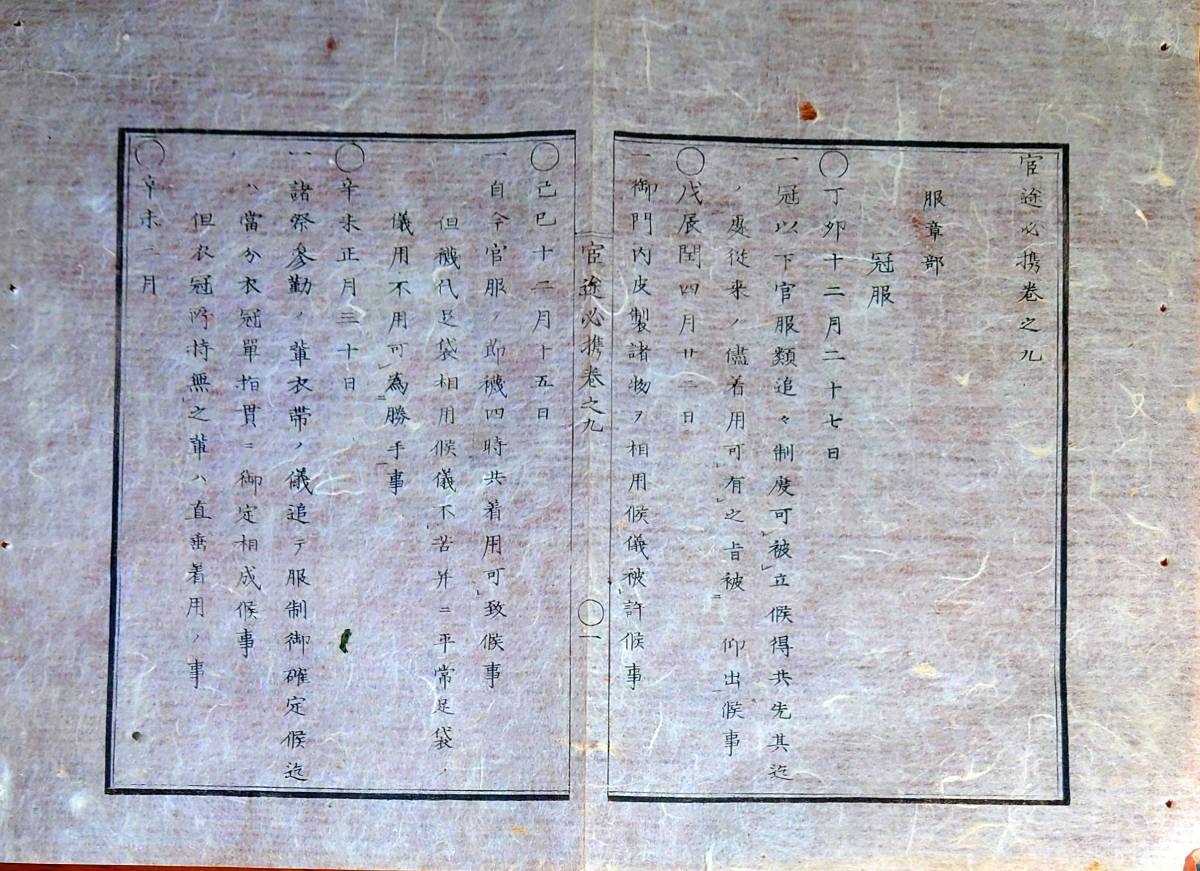 宦途必携卷之九
服章部
冠服
○丁卯十二月二十七日
一冠以下官服類追々制度可被立候得共先其迄
ノ處從来ノ儘着用可有之旨被 仰出候事
○戊辰閏四月廿二日
一御門内皮製諸物ヲ相用候儀被許候事
宦途必携卷之九 ○一
○己巳十二月十五日
一自今官服ノ節襪四時共着用可致候事
但襪代足袋相用候儀不苦并ニ平常足袋ノ
儀用不用可為勝手事
○辛未正月三十日
一諸祭參勤ノ輩衣帶ノ儀追テ服制御確定候迄
ハ當分衣冠單指貫ニ御定相成候事
但衣冠所持無之輩ハ直垂着用ノ事
○辛未二月